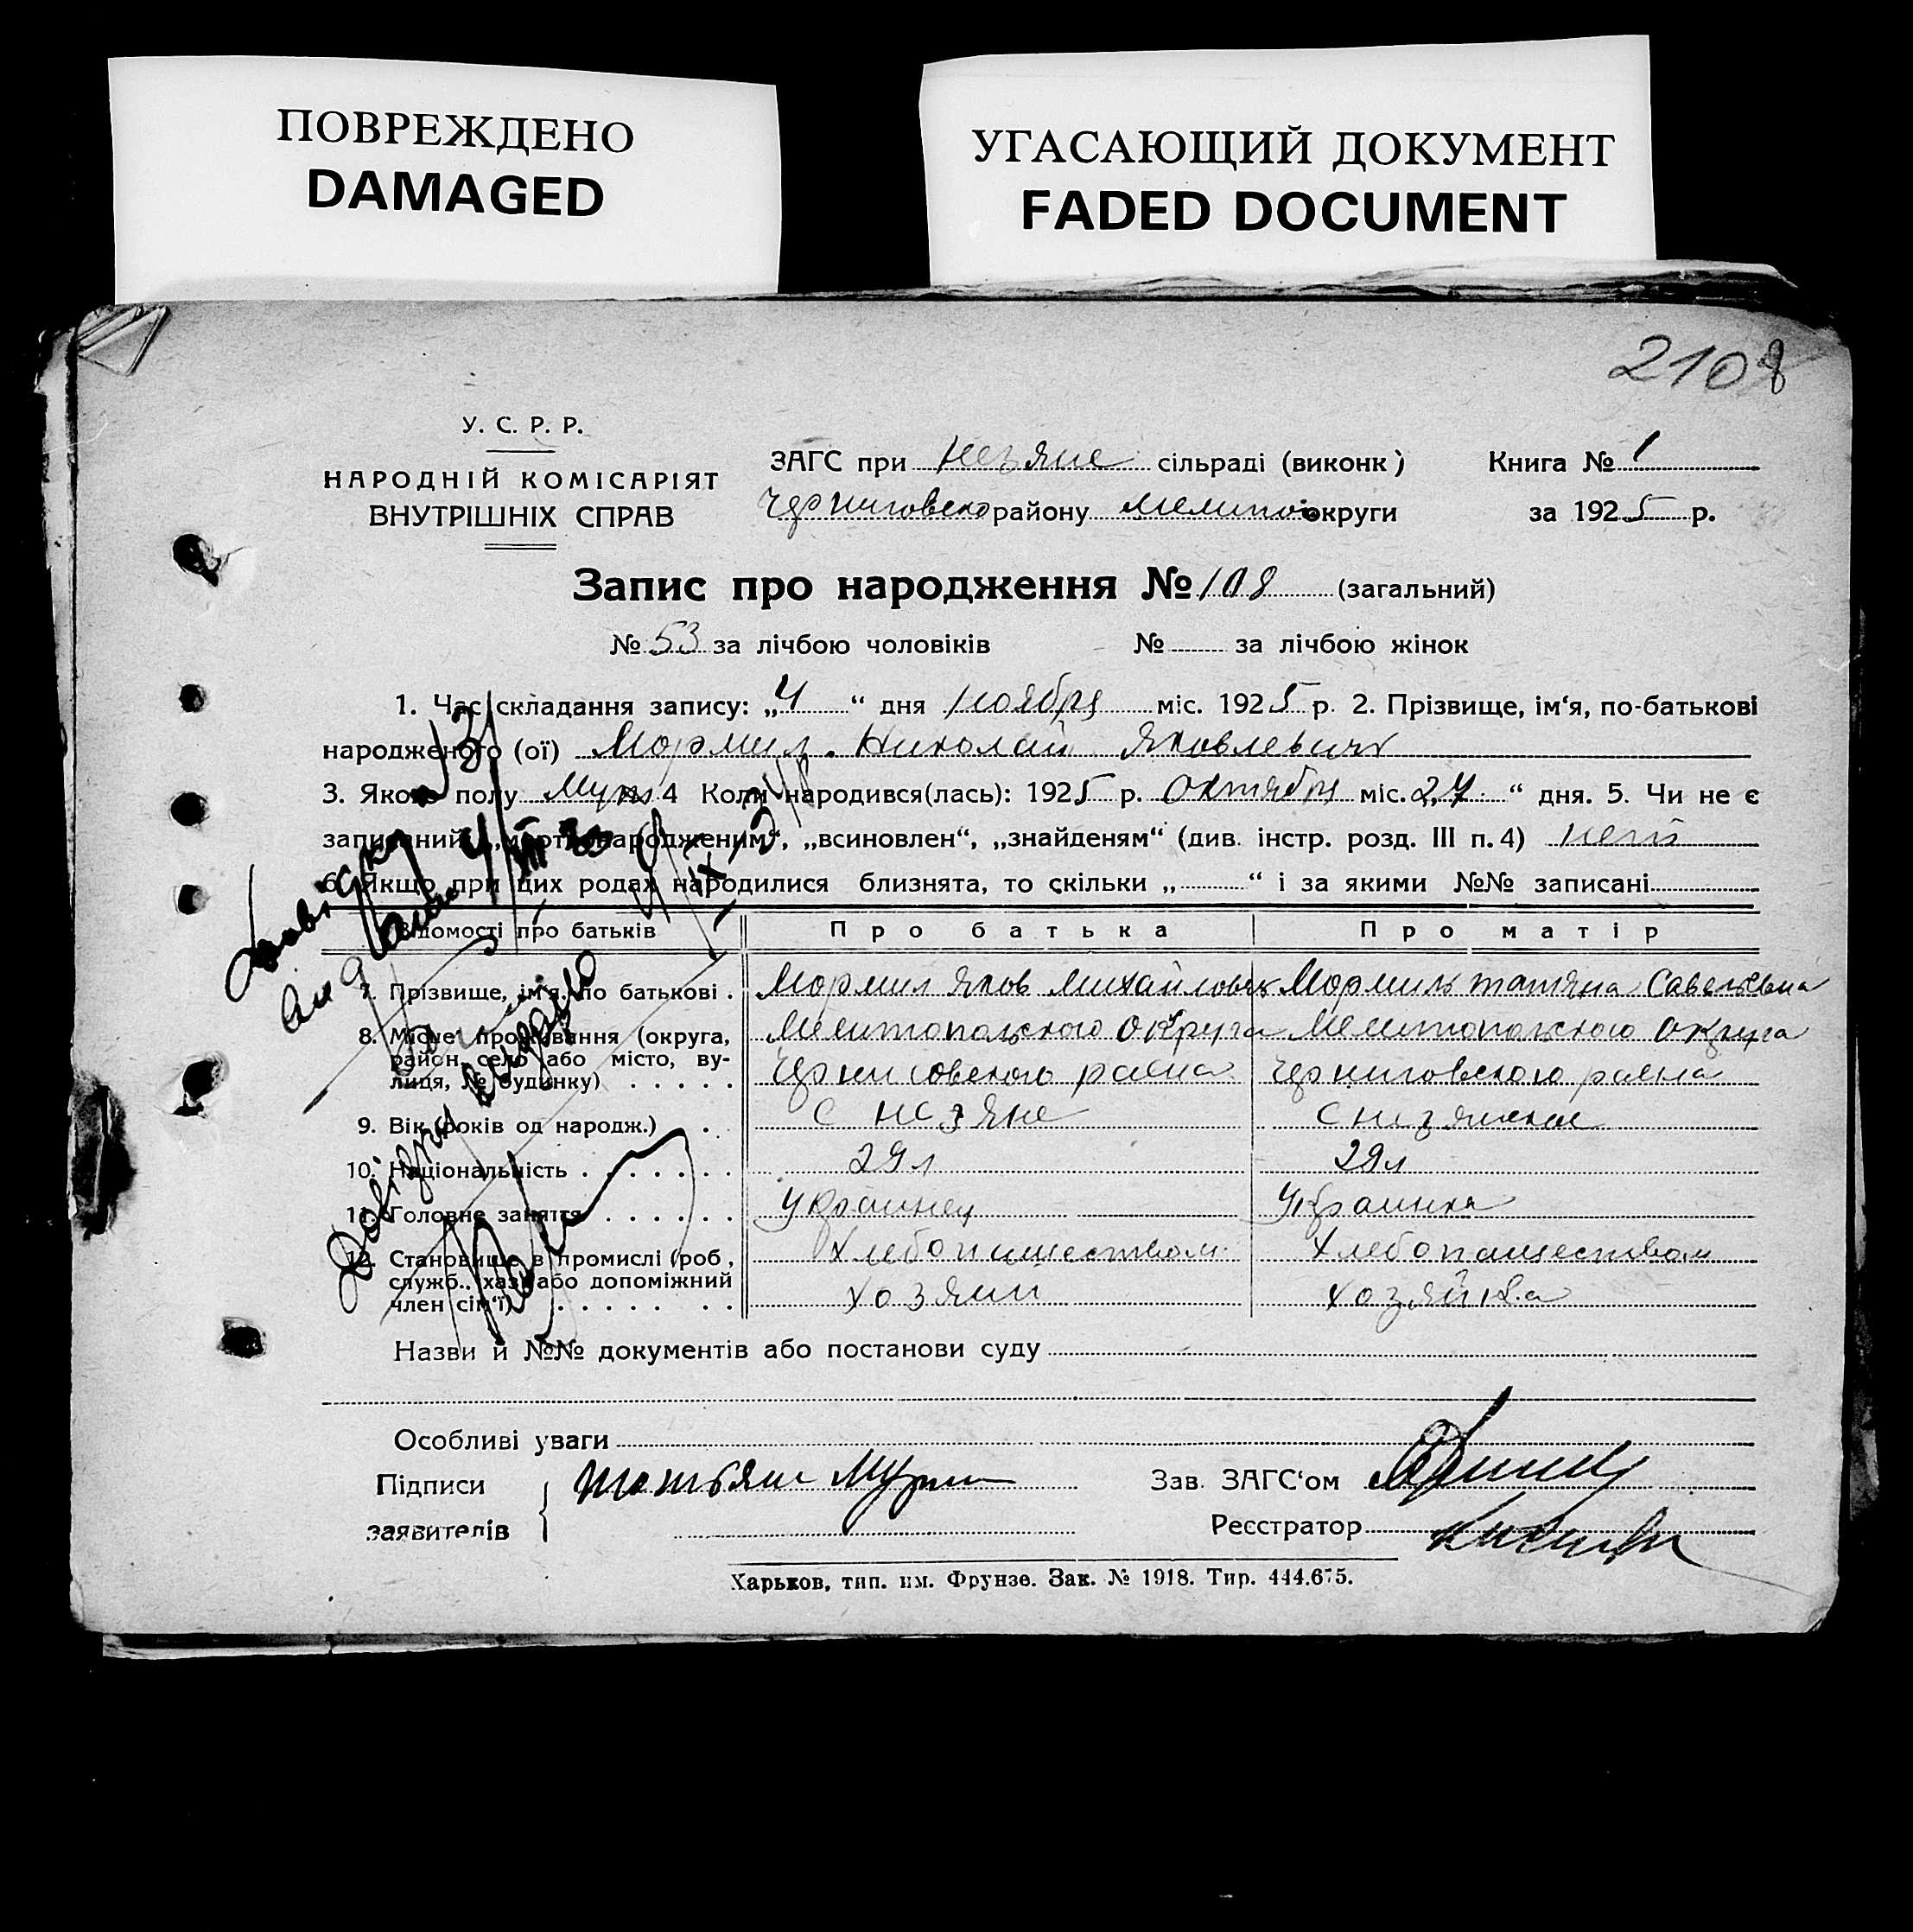 ПОВРЕЖДЕНО
DAMAGED
УГАСАЮЩИЙ ДОКУМЕНТ
FADED DOCUMENT
2108
У. С. Р. Р.
НАРОДНІЙ КОМІСАРІЯТ
ВНУТРІШНІХ СПРАВ
ЗАГС при сільраді (виконк)
Черниговско району округи
Книга № 1
за 1925 р.
Запис про народження № 108 (загальний)
№ 53 за лічбою чоловіків № за лічбою жінок
1. Час складання запису: „4“ дня ноября міс. 1925 р. 2. Прізвище, ім‘я, по-батькові
народженого (ої) Мормил. Николай Яковлевич
3. Якого полу Муж 4 Коли народився(лась): 1925 р. Октября міс. „27“ дня. 5. Чи не є
записаний: „мертвонародженим“, „всиновлен“, „знайденям“ (див. інстр. розд. III п. 4) нет
6. Якщо при цих родах народилися близнята, то скільки „ “ і за якими №№ записані
Відомості про батьків Про батька Про матір
7. Прізвище, ім‘я, по батькові . Мормил Яков Михайлович Мормиль татяна Савельевна
8. Місце проживання (округа, Мелитопольского Округа Мелитопольского Округа
район, село або місто, ву-
лиця, № будинку) . . . . . Черниговского раена Черниговского раена
9. Вік (років од народж.) . .
10. Національність . . . . . . . 29 л 29 л
11. Головне заняття . . . . . . Украинец Украинка
12. Становище в промислі (роб., Хлебопашеством Хлебопашеством
служб., хазї або допоміжний
член сім‘ї) . . . . . . . . хозяин хозяйка
Назви й №№ документів або постанови суду
Особливі уваги
Підписи
заявителів
Зав. ЗАГС‘ом
Реєстратор
Харьков, тип. им. Фрунзе. Зак. № 1918. Тир. 444.675.